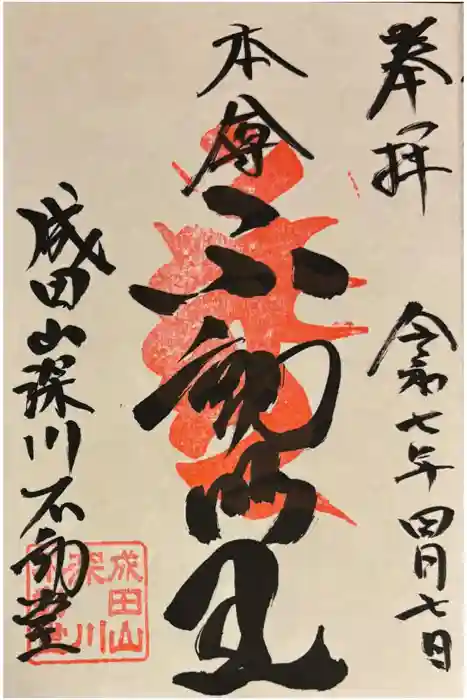 奉拝
令和七年四月七日
本尊
不動明王
成田山深川不動堂
成田山
深川
不動堂